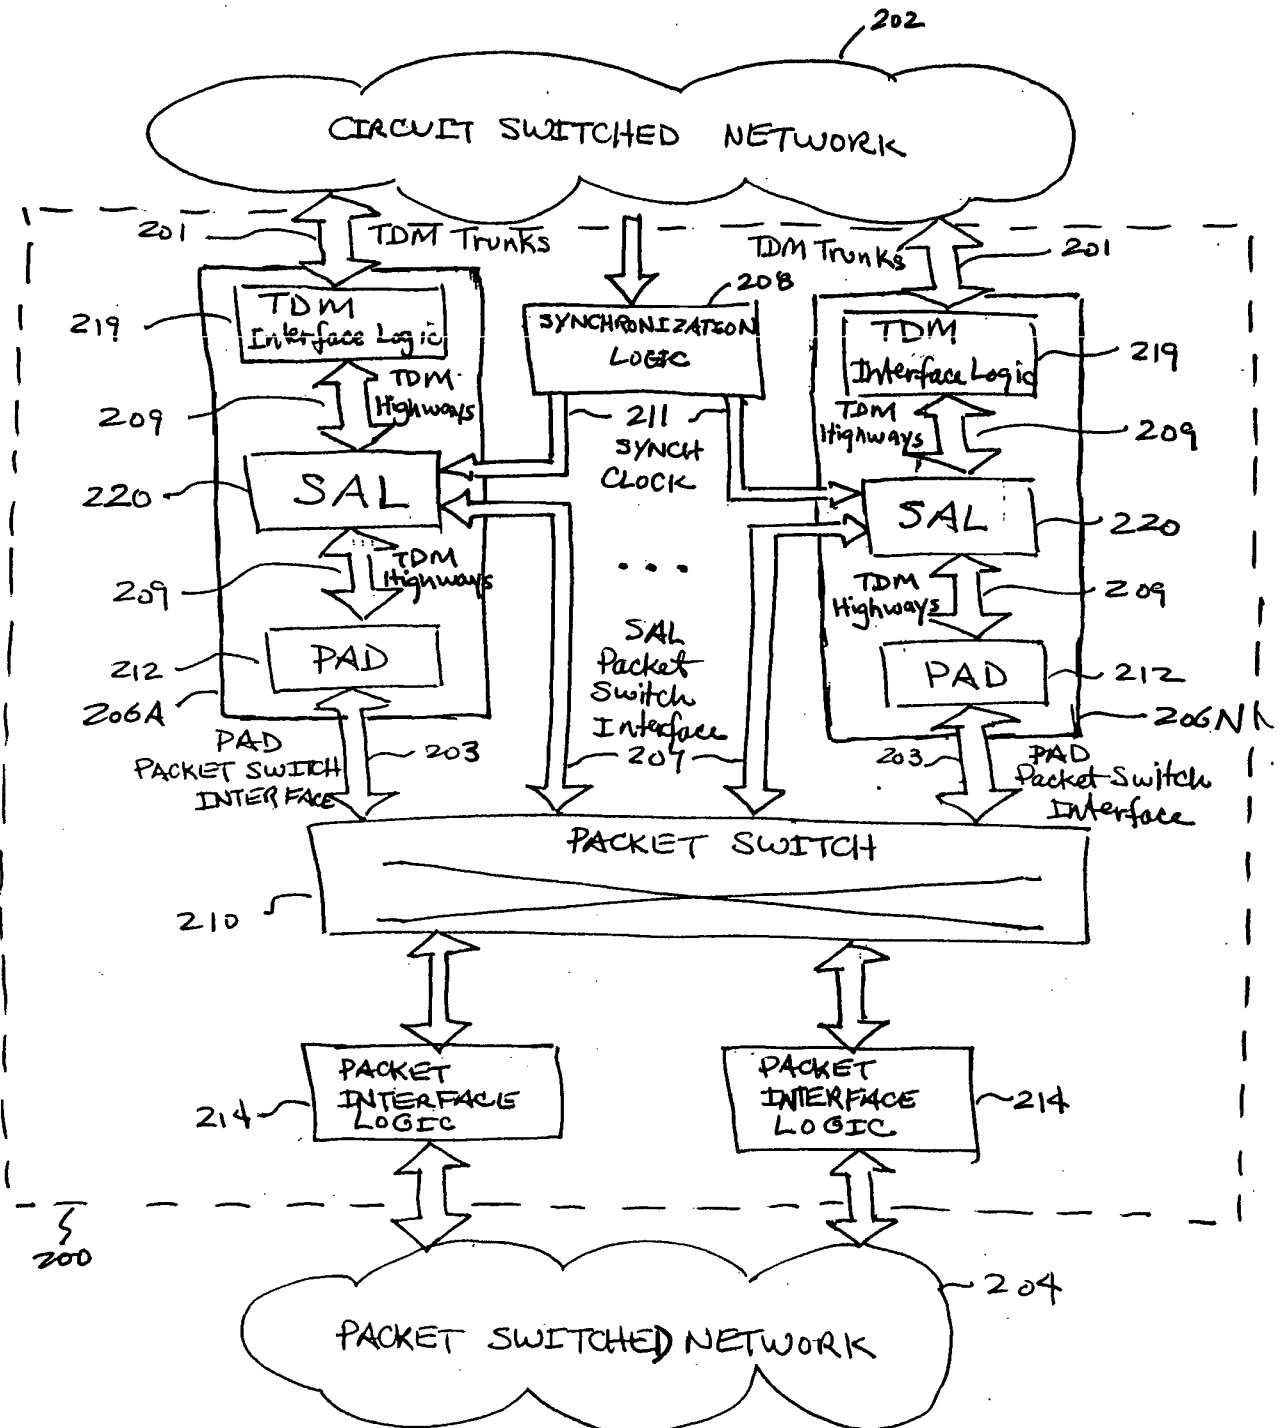 202
CIRCUIT SWITCHED NETWORK
201
TDM Trunks
TDM Trunks
201
208
219
TDM
Interface Logic
SYNCHRONIZATION
LOGIC
TDM
Interface Logic
219
209
TDM
Highways
211
SYNCH
CLOCK
TDM
Highways
209
220
SAL
SAL
220
...
209
TDM
Highways
TDM
Highways
209
212
PAD
SAL
Packet
Switch
Interface
PAD
212
206A
206N
PAD
PACKET SWITCH
INTERFACE
203
207
203
PAD
Packet Switch
Interface
PACKET SWITCH
210
214
PACKET
INTERFACE
LOGIC
PACKET
INTERFACE
LOGIC
214
200
204
PACKET SWITCHED NETWORK